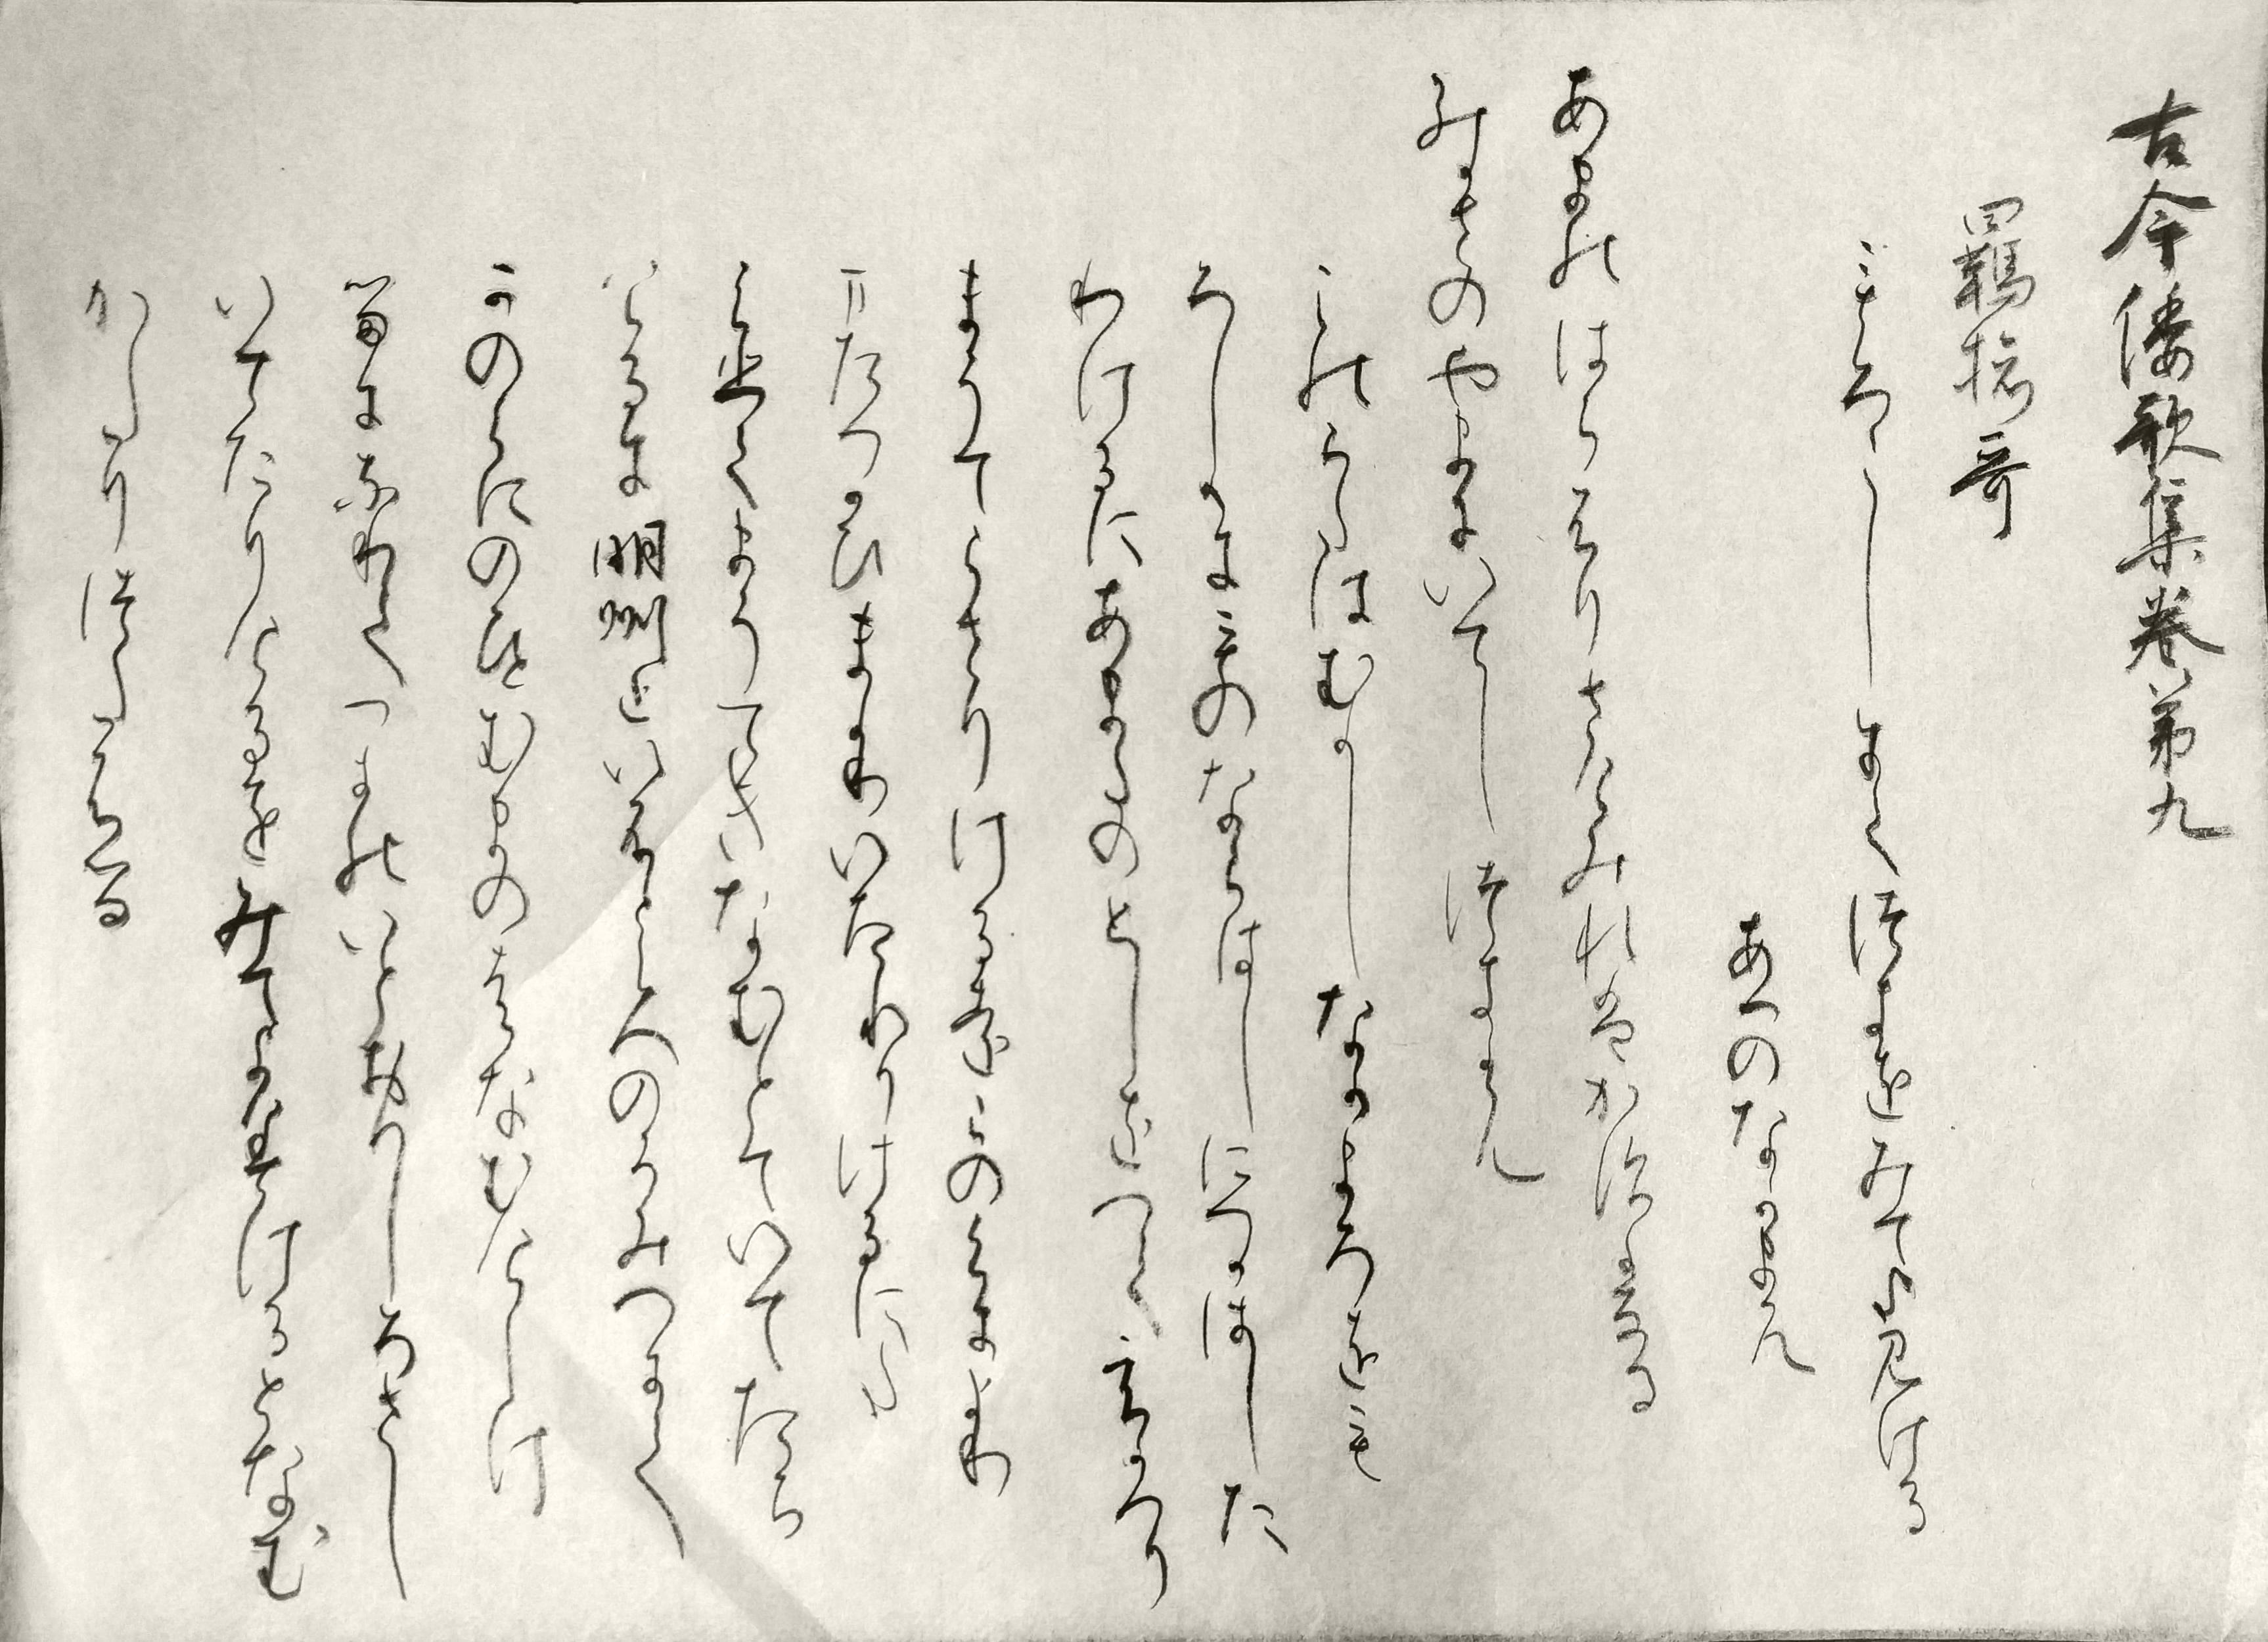 古今倭歌集巻第九
羈旅哥
もろこしにてつきをみてよみける
あへのなかまろ
あまのはらふりさけみれはかすかなる
みかさのやまにいてしつきかも
このうたはむかしなかまろをも
ろこしにものならはしにつかはした
りけるにあまたのとしをへてえかへり
まうてこさりけるをこのくにより
またつかひまかりいたりけるにた
くひてまうてきなむとていてたち
けるに明州といふところのうみへにて
かのくにのひとむまのはなむけしけ
りよるになりてつきのいとおもしろくさし
いてたりけるをみてよめるとなむ
かたりつたふる